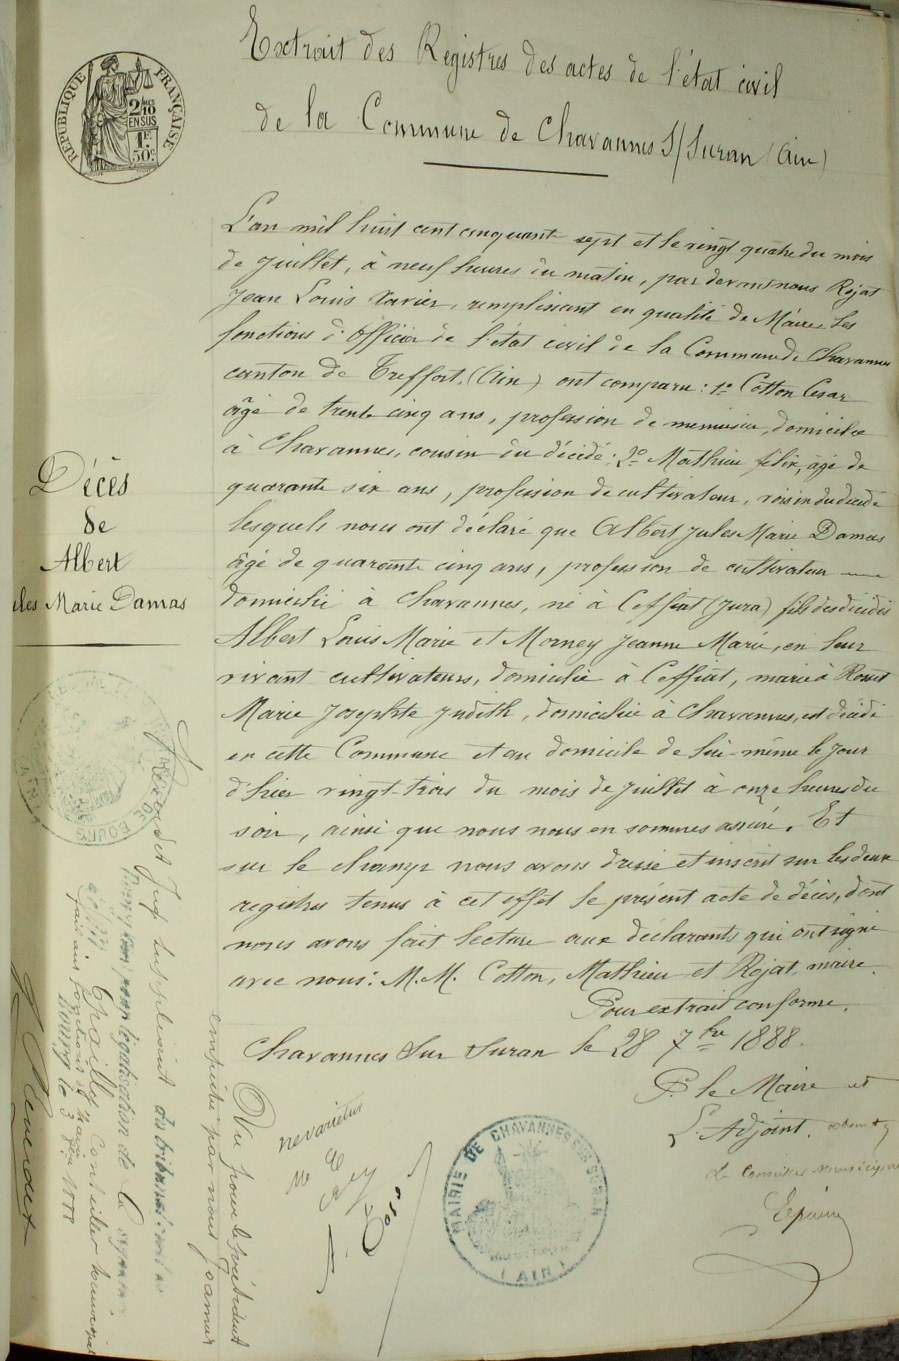 Extrait des Registres des actes de l'état civil
de la Commune de Chavannes S/Suran (Ain)
RÉPUBLIQUE FRANÇAISE
2/10
EN SUS
1F.
50c
L'an mil huit cent cinquante sept et le vingt quatre du mois
de Juillet, à neuf heures du matin, par devant nous Rojat
Jean Louis Xavier, remplissant en qualité de Maire les
fonctions d'officier de l'état civil de la Commune de Chavannes
canton de Treffort, (Ain) ont comparu : 1º Cotton César
âgé de trente cinq ans, profession de menuisier, domicilié
à Chavannes, cousin du décédé ; 2º Mathieu félix, âgé de
quarante six ans, profession de cultivateur, voisin du décédé
lesquels nous ont déclaré que Albert Jules Marie Damas
âgé de quarante cinq ans, profession de cultivateur
domicilié à Chavannes, né à Coffiat (Jura) fils des décédés
Albert Louis Marie et Morney Jeanne Marie, en leur
vivant cultivateurs, domicilié à Coffiat, marié à
Marie Josephte Judith, domiciliée à Chavannes, est décédé
en cette Commune et au domicile de lui-même le jour
d'hier vingt-trois du mois de Juillet à onze heures du
soir, ainsi que nous nous en sommes assuré. Et
sur le champ nous avons dressé et inscrit sur les deux
registres tenus à cet effet le présent acte de décès, dont
nous avons fait lecture aux déclarants qui ont signé
avec nous : M.M. Cotton, Mathieu et Rojat, maire.
Pour extrait conforme.
Chavannes Sur Suran le 28 7bre 1888.
P. le Maire et
L'Adjoint,
Le Conseiller
Décès
de
Albert
Jules Marie Damas
MAIRIE DE CHAVANNES SUR SURAN
(AIN)
ne varietur
Vu pour le président
empêché par nous
Juge suppléant du tribunal civil
pour légalisation de la signature
Conseiller municipal
faisant fonctions de maire